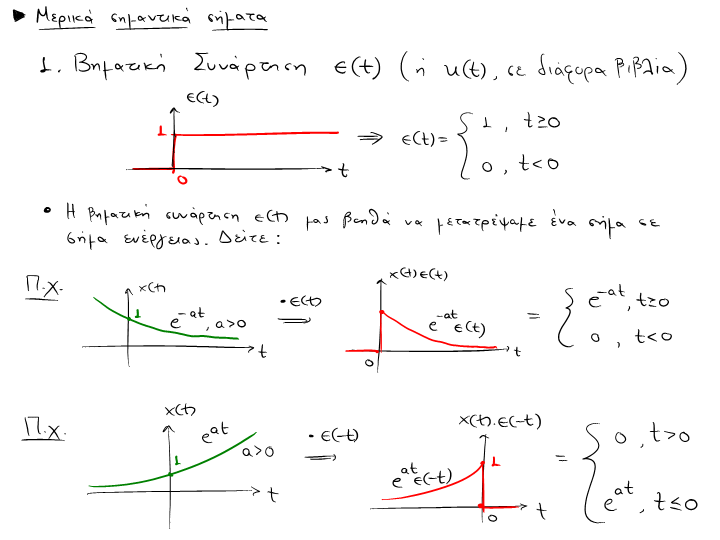 ▶ Μερικά σημαντικά σήματα
1. Βηματική Συνάρτηση ε(t) (ή u(t), σε διάφορα βιβλία)
ε(t)
1
0
t
⇒ ε(t) = { 1 , t≥0
0 , t<0
• Η βηματική συνάρτηση ε(t) μας βοηθά να μετατρέψουμε ένα σήμα σε
σήμα ενέργειας. Δείτε :
Π.χ.
x(t)
1
e^{-at}, a>0
t
· ε(t)
⇒
x(t)ε(t)
e^{-at} ε(t)
0
t
= { e^{-at}, t≥0
0 , t<0
Π.χ.
x(t)
e^{at}
a>0
1
t
· ε(-t)
⇒
x(t).ε(-t)
e^{at} ε(-t)
1
0
t
= { 0 , t>0
e^{at}, t≤0